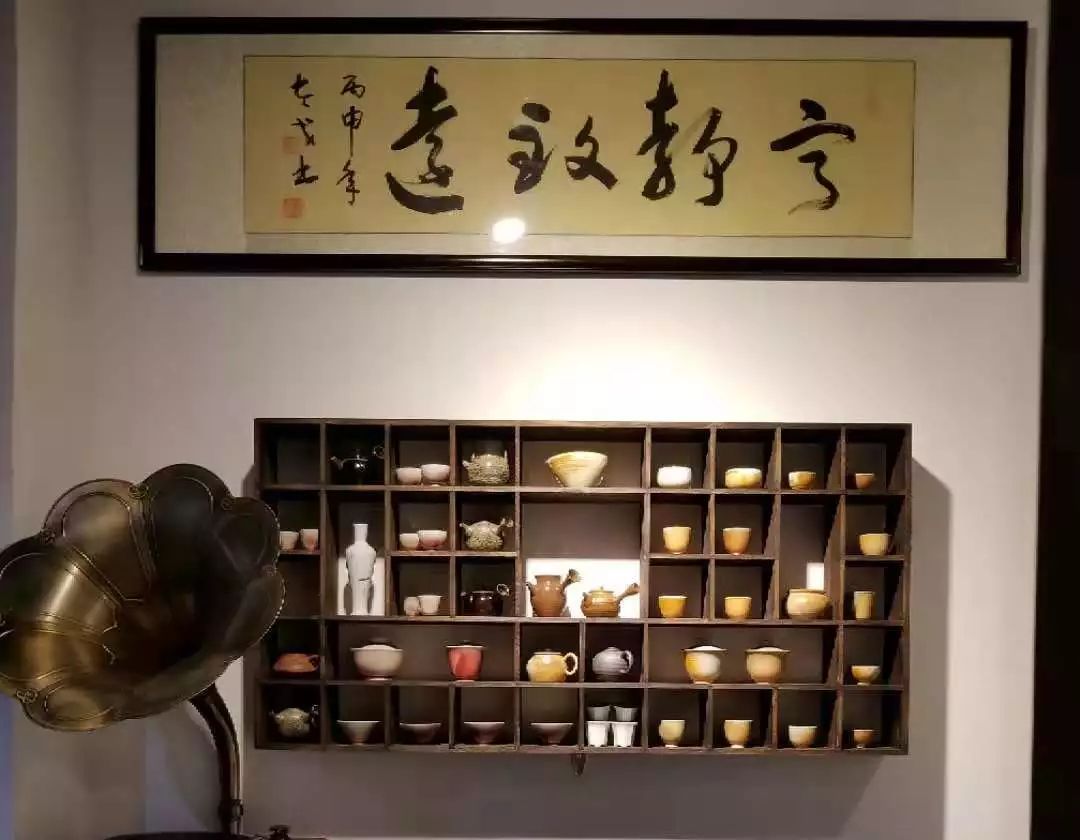 宁静致远
丙申年